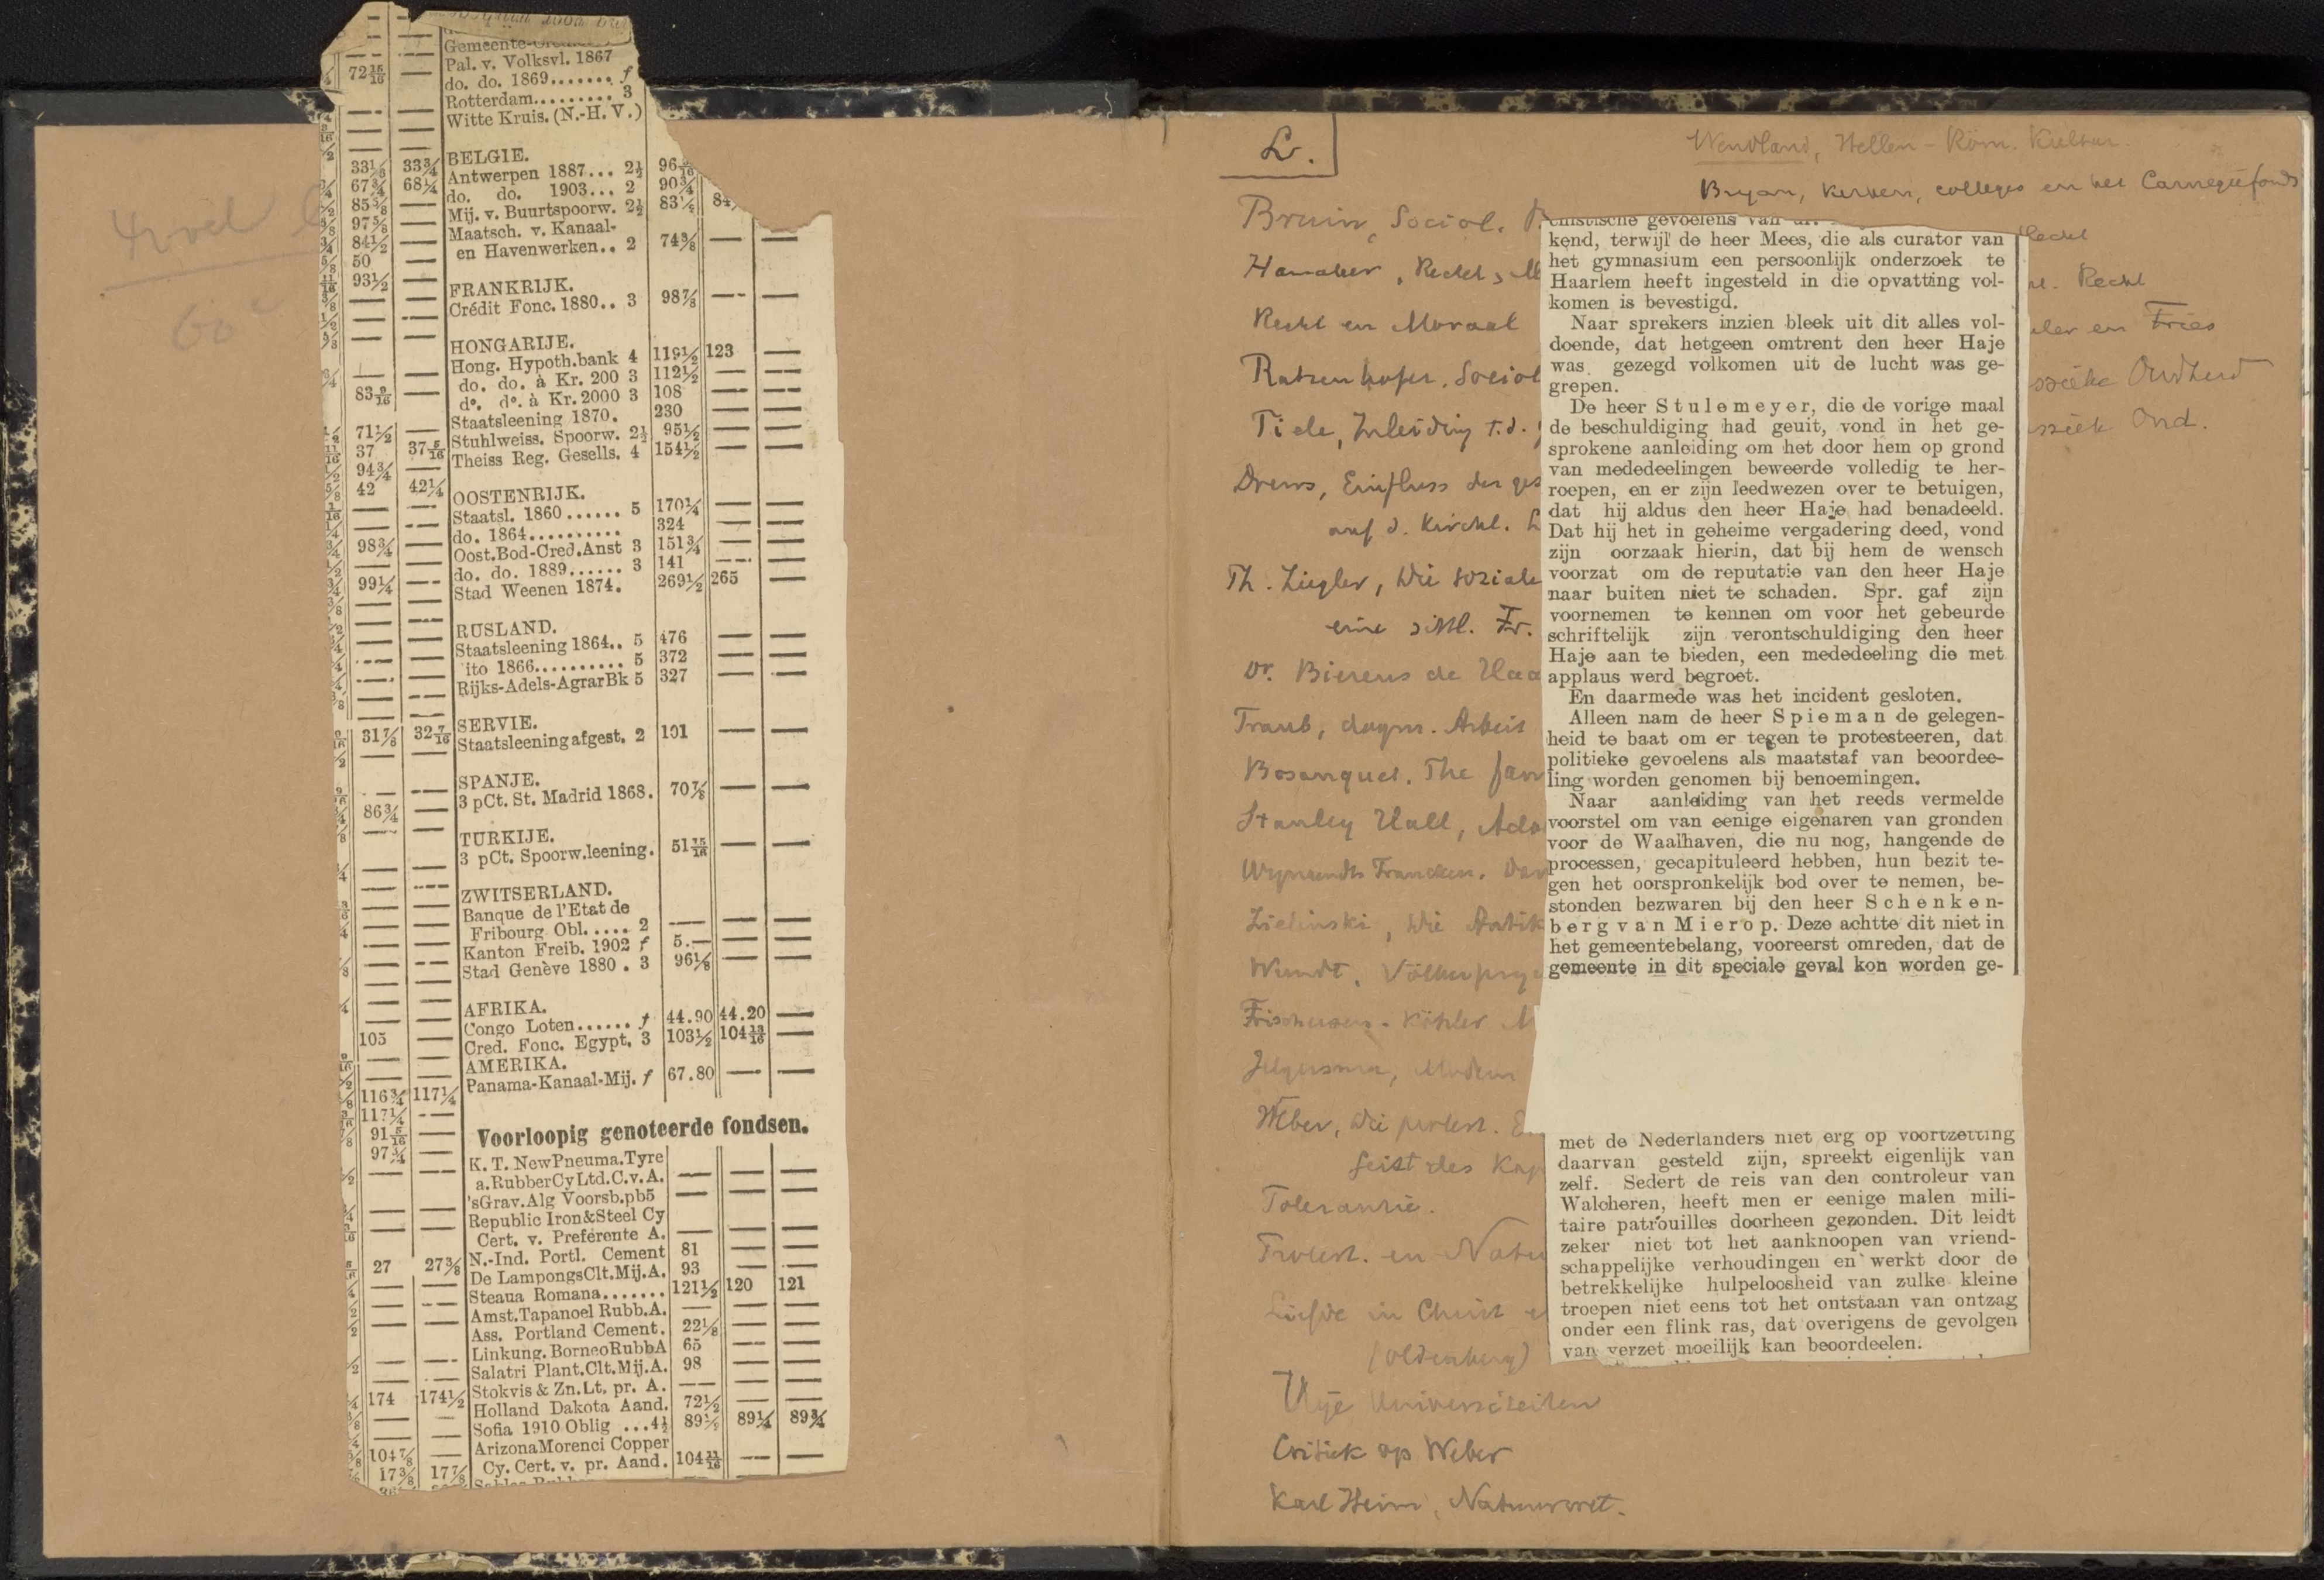 4 vel
60 c
Gemeente-
Pal. v. Volksvl. 1867
72 15/16 — do. do. 1869....... f
Rotterdam......... 3
Witte Kruis. (N.-H. V.)
BELGIE.
33 1/8 33 3/4 Antwerpen 1887... 2½ 96
67 3/4 68 1/4 do. do. 1903... 2 90 3/4
85 5/8 — Mij. v. Buurtspoorw. 2½ 83 1/4 84
97 5/8 — Maatsch. v. Kanaal-
84 1/2 — en Havenwerken.. 2 74 3/8 — —
50 —
93 1/2 — FRANKRIJK.
Crédit Fonc. 1880.. 3 98 7/8 — —
HONGARIJE.
Hong. Hypoth.bank 4 119 1/2 123 —
do. do. à Kr. 200 3 112 1/2 — —
83 9/16 — do. do. à Kr. 2000 3 108 — —
Staatsleening 1870. 230 — —
71 1/2 — Stuhlweiss. Spoorw. 2½ 95 1/2 — —
37 37 5/16 Theiss Reg. Gesells. 4 154 1/2 — —
94 3/4 —
42 42 1/4 OOSTENRIJK.
Staatsl. 1860...... 5 170 1/4 — —
do. 1864.......... 324 — —
98 3/4 — Oost.Bod-Cred.Anst 3 151 3/4 — —
do. do. 1889...... 3 141 — —
99 1/4 — Stad Weenen 1874. 269 1/2 265 —
RUSLAND.
Staatsleening 1864.. 5 476 — —
ito 1866.......... 5 372 — —
Rijks-Adels-AgrarBk 5 327 — —
SERVIE.
31 7/8 32 7/16 Staatsleening afgest. 2 101 — —
SPANJE.
3 pCt. St. Madrid 1868. 70 7/8 — —
86 3/4 —
TURKIJE.
3 pCt. Spoorw.leening. 51 15/16 — —
ZWITSERLAND.
Banque de l'Etat de
Fribourg Obl..... 2 — — —
Kanton Freib. 1902 f 5.— — —
Stad Genève 1880 . 3 96 1/8 — —
AFRIKA.
Congo Loten...... f 44.90 44.20 —
105 — Cred. Fonc. Egypt. 3 103 1/2 104 13/16 —
AMERIKA.
Panama-Kanaal-Mij. f 67.80 — —
116 3/4 117 1/4
117 1/4 —
91 5/16 — Voorloopig genoteerde fondsen.
97 3/4 —
K. T. NewPneuma.Tyre
a.RubberCyLtd.C.v.A. — — —
'sGrav.Alg Voorsb.pb5 — — —
Republic Iron&Steel Cy
Cert. v. Preferente A. — — —
27 27 3/8 N.-Ind. Portl. Cement 81 — —
De LampongsClt.Mij.A. 93 — —
Steaua Romana....... 121 1/2 120 121
Amst.Tapanoel Rubb.A. — — —
Ass. Portland Cement. 22 1/8 — —
Linkung. BorneoRubbA 65 — —
Salatri Plant.Clt.Mij.A. 98 — —
Stokvis & Zn.Lt. pr. A. — — —
174 174 1/2 Holland Dakota Aand. 72 1/2 — —
Sofia 1910 Oblig ...4½ 89 1/2 89 1/4 89 3/4
ArizonaMorenci Copper
104 7/8 — Cy. Cert. v. pr. Aand. 104 11/16 — —
17 3/8 17 7/8
L.
Wendland, Hellen-Röm. Kultur.
Bryan, kerken, colleges en het Carnegiefonds
Bruin, Social.
Hamaker, Recht,
Recht en Moraal
Ratzenhofer. Sociol
Tiele, Inleiding t.d.
Drews, Einfluss der ges
auf d. Kirchl.
Th. Ziegler, Die soziale
eine sittl. Fr.
Dr. Bierens de Haa
Traub, dogm. Arbeit
Bosanquet. The fam
Stanley Hall, Ado
Wynaendts Francken.
Zielinski, Die Antik
Wundt. Völkerpsy
Frischeisen-Köhler
Jelgersma, Modern
Weber, Die protest. E
Geist des Kap
Tolerantie.
Protest. en Natu
Liefde in Christ
(Oldenberg)
Vrije Universiteiten
Critiek op Weber
Karl Heim, Natuurwet.
Recht
Recht
en Fries
Oudheid
Oud.
gevoelens van
kend, terwijl de heer Mees, die als curator van
het gymnasium een persoonlijk onderzoek te
Haarlem heeft ingesteld in die opvatting vol-
komen is bevestigd.
Naar sprekers inzien bleek uit dit alles vol-
doende, dat hetgeen omtrent den heer Haje
was gezegd volkomen uit de lucht was ge-
grepen.
De heer Stulemeyer, die de vorige maal
de beschuldiging had geuit, vond in het ge-
sprokene aanleiding om het door hem op grond
van mededeelingen beweerde volledig te her-
roepen, en er zijn leedwezen over te betuigen,
dat hij aldus den heer Haje had benadeeld.
Dat hij het in geheime vergadering deed, vond
zijn oorzaak hierin, dat bij hem de wensch
voorzat om de reputatie van den heer Haje
naar buiten niet te schaden. Spr. gaf zijn
voornemen te kennen om voor het gebeurde
schriftelijk zijn verontschuldiging den heer
Haje aan te bieden, een mededeeling die met
applaus werd begroet.
En daarmede was het incident gesloten.
Alleen nam de heer Spieman de gelegen-
heid te baat om er tegen te protesteeren, dat
politieke gevoelens als maatstaf van beoordee-
ling worden genomen bij benoemingen.
Naar aanleiding van het reeds vermelde
voorstel om van eenige eigenaren van gronden
voor de Waalhaven, die nu nog, hangende de
processen, gecapituleerd hebben, hun bezit te-
gen het oorspronkelijk bod over te nemen, be-
stonden bezwaren bij den heer Schenken-
berg van Mierop. Deze achtte dit niet in
het gemeentebelang, vooreerst omreden, dat de
gemeente in dit speciale geval kon worden ge-
met de Nederlanders niet erg op voortzetting
daarvan gesteld zijn, spreekt eigenlijk van
zelf. Sedert de reis van den controleur van
Walcheren, heeft men er eenige malen mili-
taire patrouilles doorheen gezonden. Dit leidt
zeker niet tot het aanknoopen van vriend-
schappelijke verhoudingen en werkt door de
betrekkelijke hulpeloosheid van zulke kleine
troepen niet eens tot het ontstaan van ontzag
onder een flink ras, dat overigens de gevolgen
van verzet moeilijk kan beoordeelen.